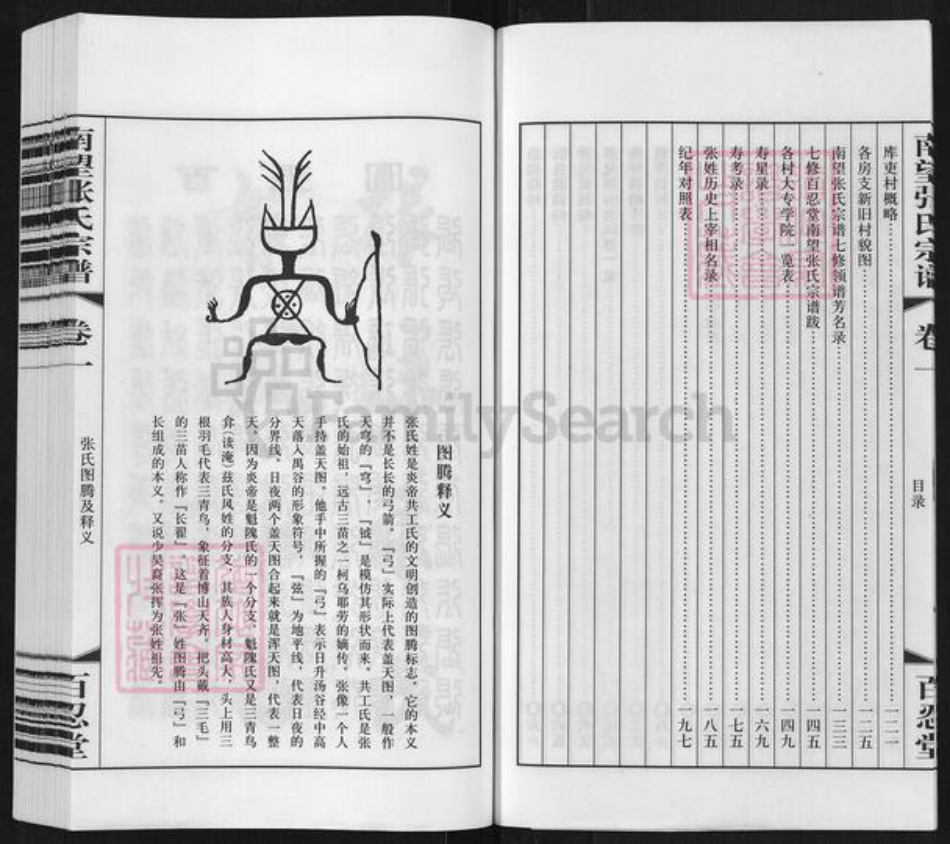 南望张氏宗谱
卷一
目录
百忍堂
库吏村概略 一二一
各房支新旧村貌图 一二五
南望张氏宗谱七修领谱芳名录 一三三
七修百忍堂南望张氏宗谱跋 一四五
各村大专学院一览表 一四九
寿星录 一六九
寿考录 一七五
张姓历史上宰相名录 一八五
纪年对照表 一九七
图腾释义
张氏姓是炎帝共工氏的文明创造的图腾标志。它的本义
并不是长长的弓箭。『弓』实际上代表盖天图，一般作
天穹的『穹』，『钺』是模仿其形状而来。共工氏是张
氏的始祖，远古三苗之一柯乌耶劳的嫡传。张像一个人
手持盖天图。他手中所握的『弓』表示日升汤谷经中高
天落入禺谷的形象符号，『弦』为地平线，代表日夜的
分界线。日夜两个盖天图合起来就是浑天图，代表一整
天。因为炎帝是魁隗氏的一个分支，魁隗氏又是三青鸟
弇（读淹）兹氏风姓的分支，其族人身材高大，头上用三
根羽毛代表三青鸟，象征着博山天齐。把头戴『三毛』
的三苗人称作『长翟』。这是『张』姓图腾由『弓』和
长组成的本义。又说少昊裔张挥为张姓祖先。
南望张氏宗谱
卷一
张氏图腾及释义
百忍堂
FamilySearch